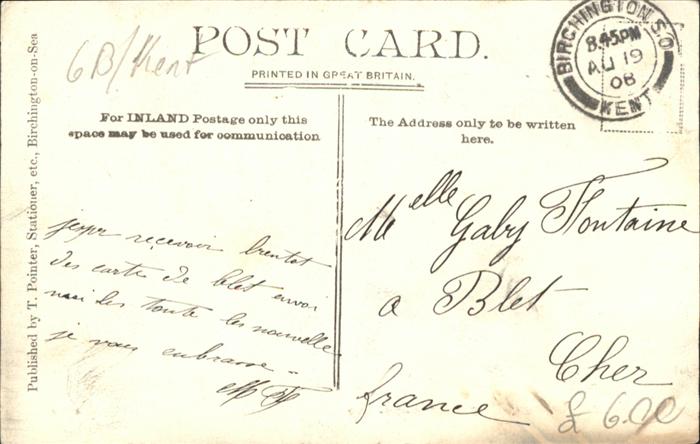 6B/Kent
POST CARD.
PRINTED IN GREAT BRITAIN.
BIRCHINGTON S.O
8.45PM
AU 19
08
KENT
For INLAND Postage only this
space may be used for communication
The Address only to be written
here.
Published by T. Pointer, Stationer, etc., Birchington-on-Sea
recevoir bientot
des carte de blet envoi
moi les toute les nouvelle
je vous embrasse
Melle Gaby Fontaine
a Blet
Cher
france
£ 6.00